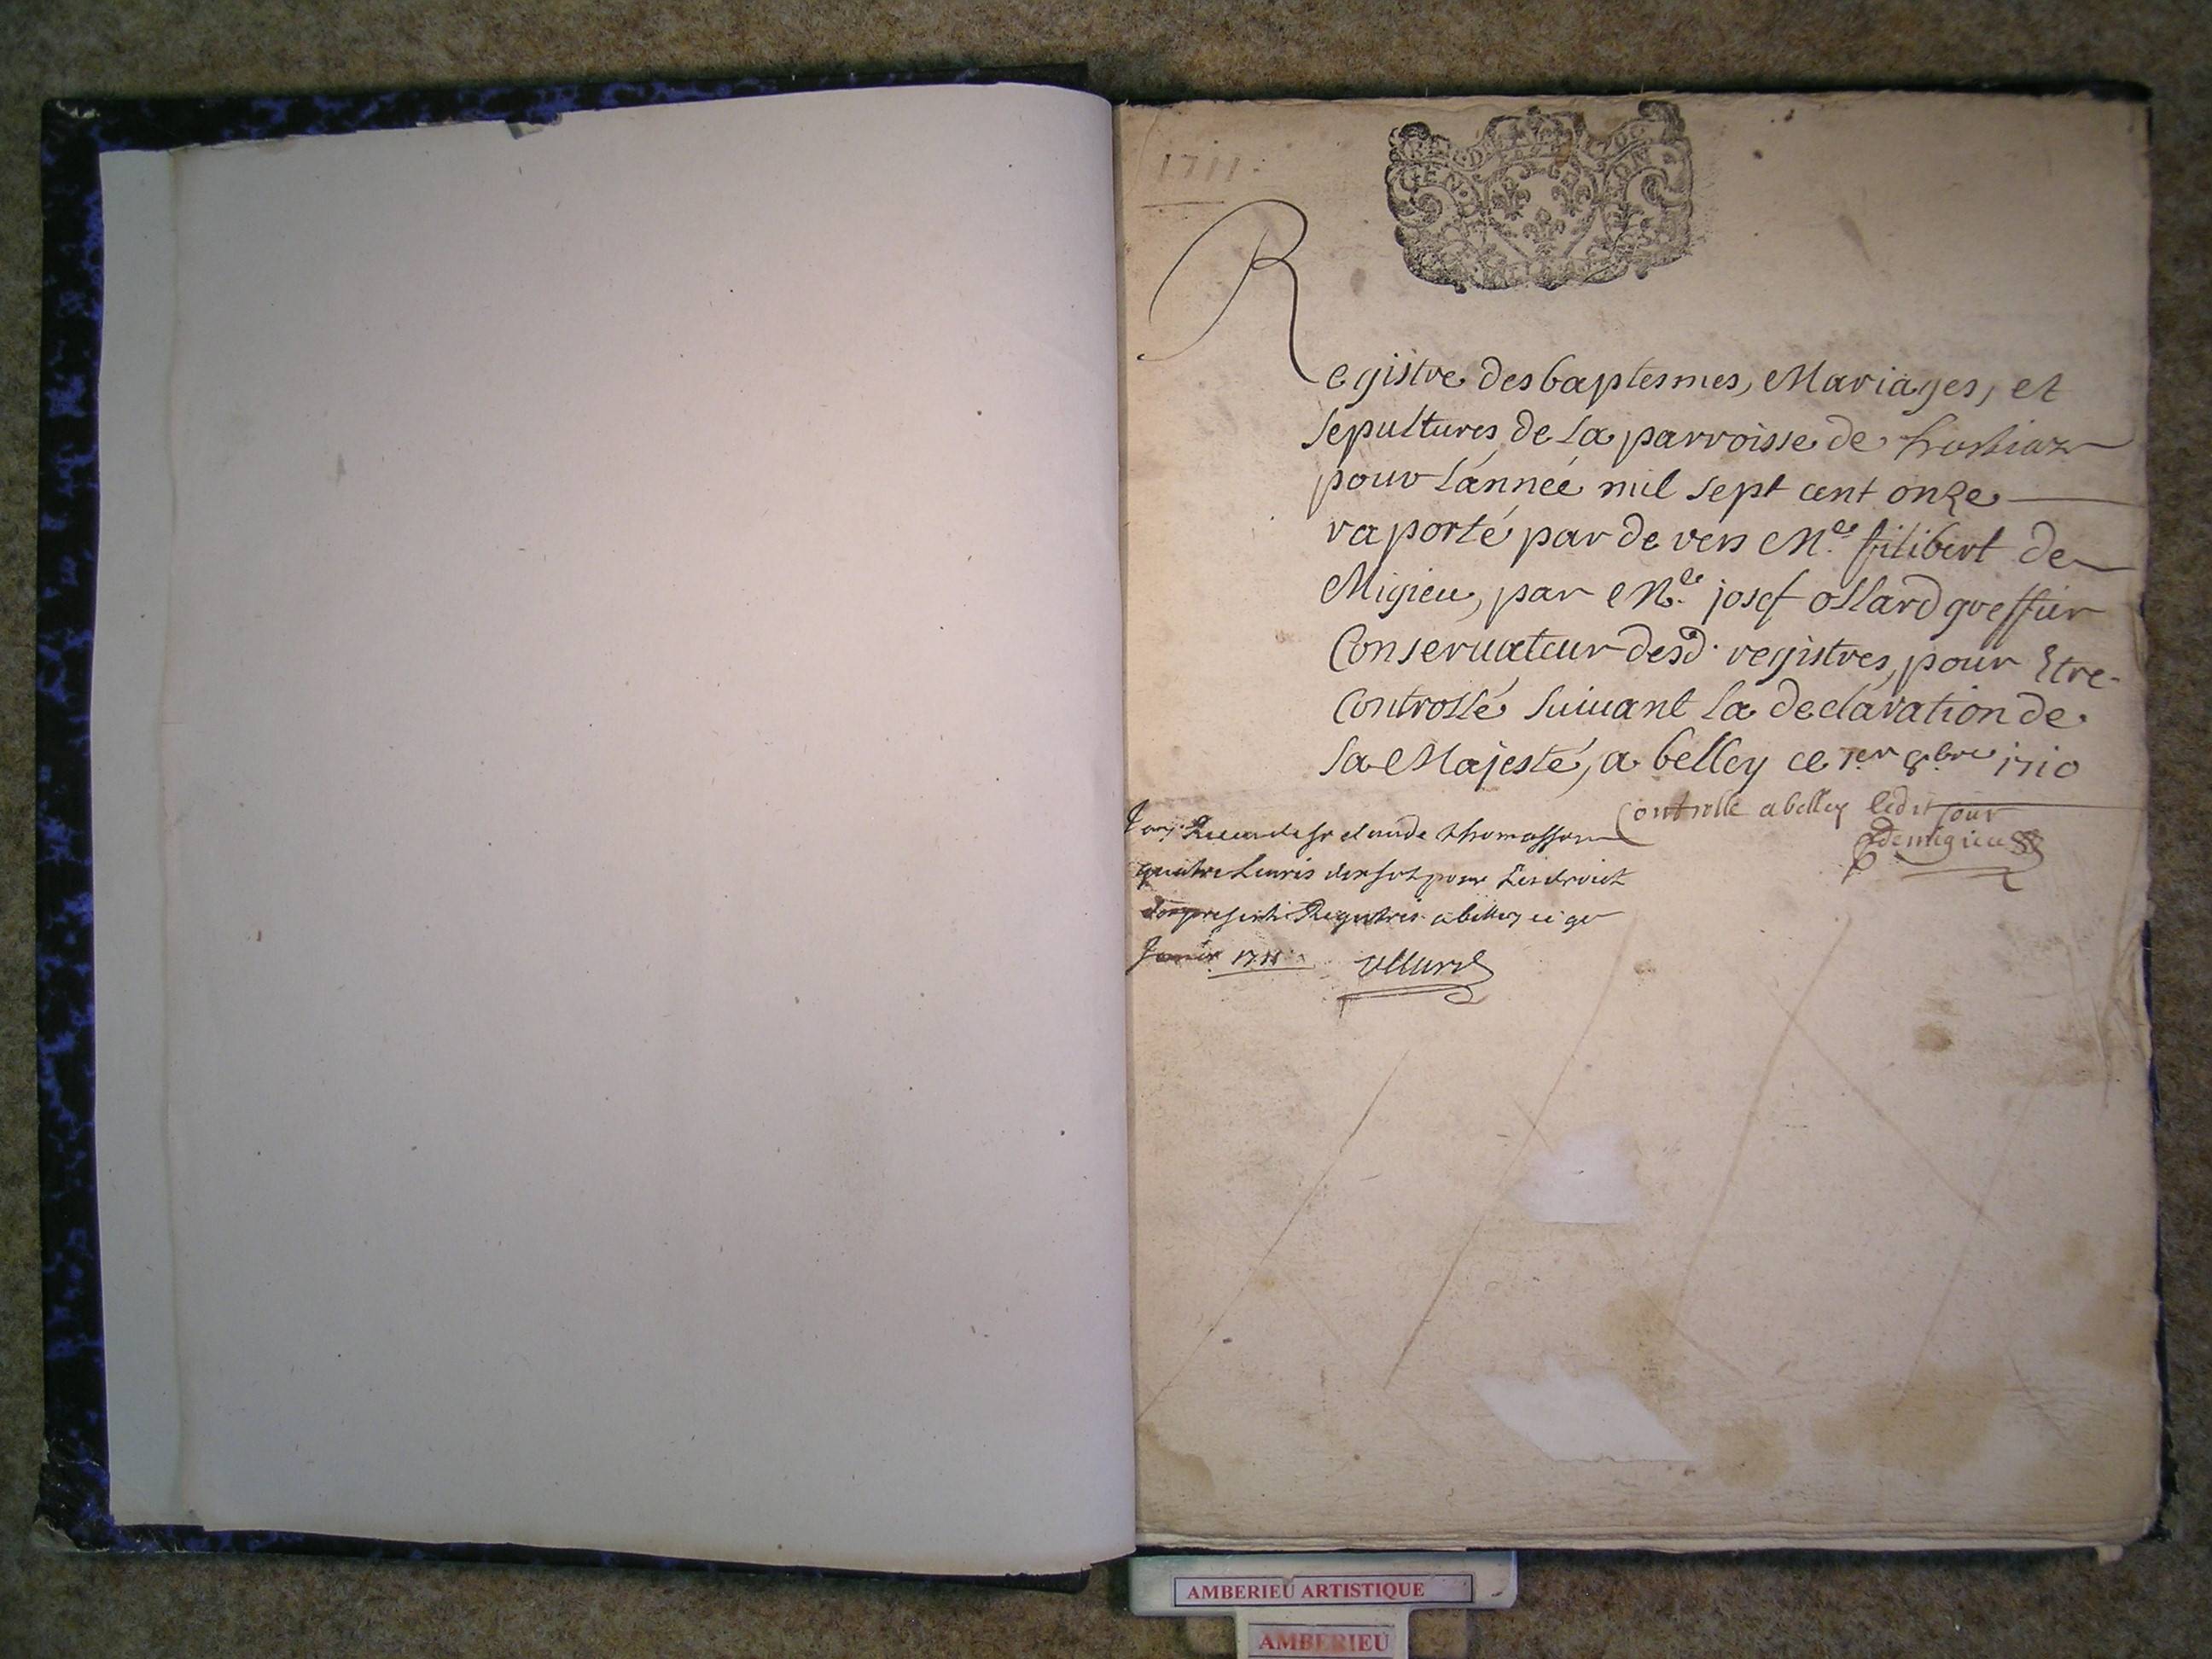 1711.
Registre des baptesmes, Mariages, et
sepultures de la parroisse de
pour l'année mil sept cent onze
raporté par de vers Me. filibert de
Migieu, par Me. josef ollard greffier
Conservateur desd. registres, pour Etre
Controllé suivant la declaration de
sa Majesté, a belley ce 1er 8bre 1710
Controlle a belley ledit jour
demigieu
Jay Receu de sr claude thomasson
quatre Livres dix sols pour Les droict
presents Registres a belley ce 9e
Janvier 1711
ollard
AMBERIEU ARTISTIQUE
AMBERIEU